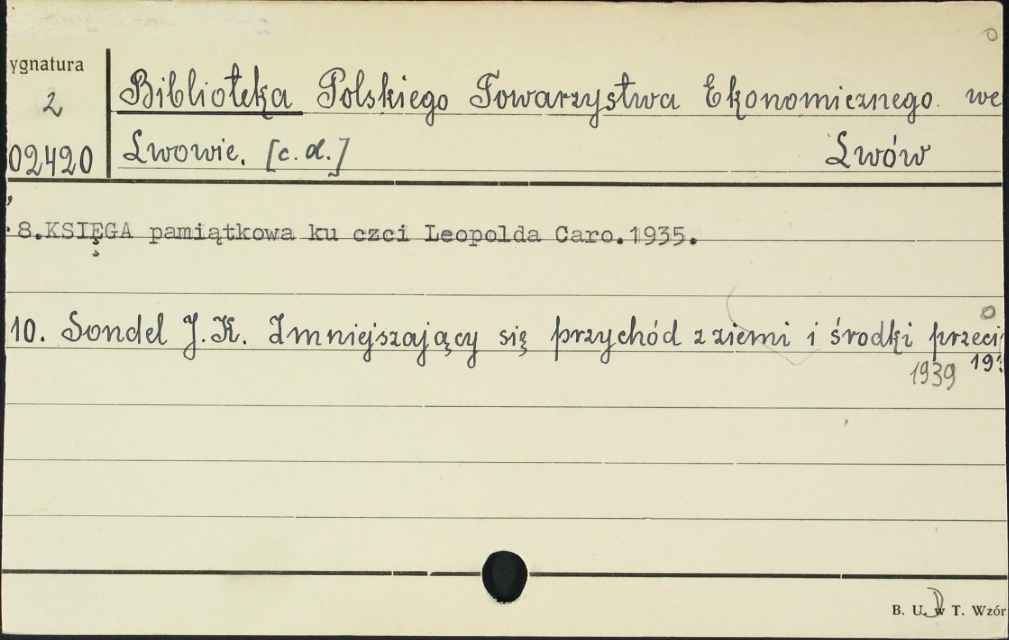 ygnatura
2
02420
Biblioteka Polskiego Towarzystwa Ekonomicznego we
Lwowie. [c. d.] Lwów
8.KSIĘGA pamiątkowa ku czci Leopolda Caro.1935.
10. Sondel J.K. Zmniejszający się przychód z ziemi i środki przeci
1939 19
B. U. w T. Wzór